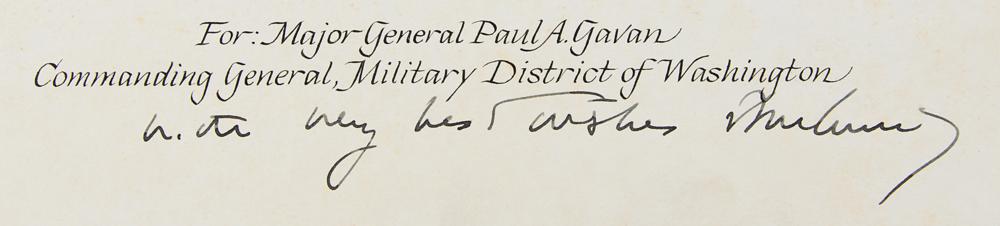 For: Major General Paul A. Gavan
Commanding General, Military District of Washington
with very best wishes